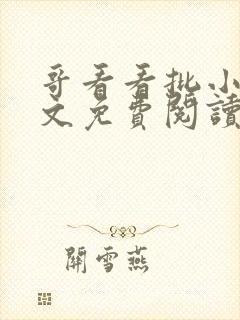 哥看看批小
文免費閱讀
關雪燕